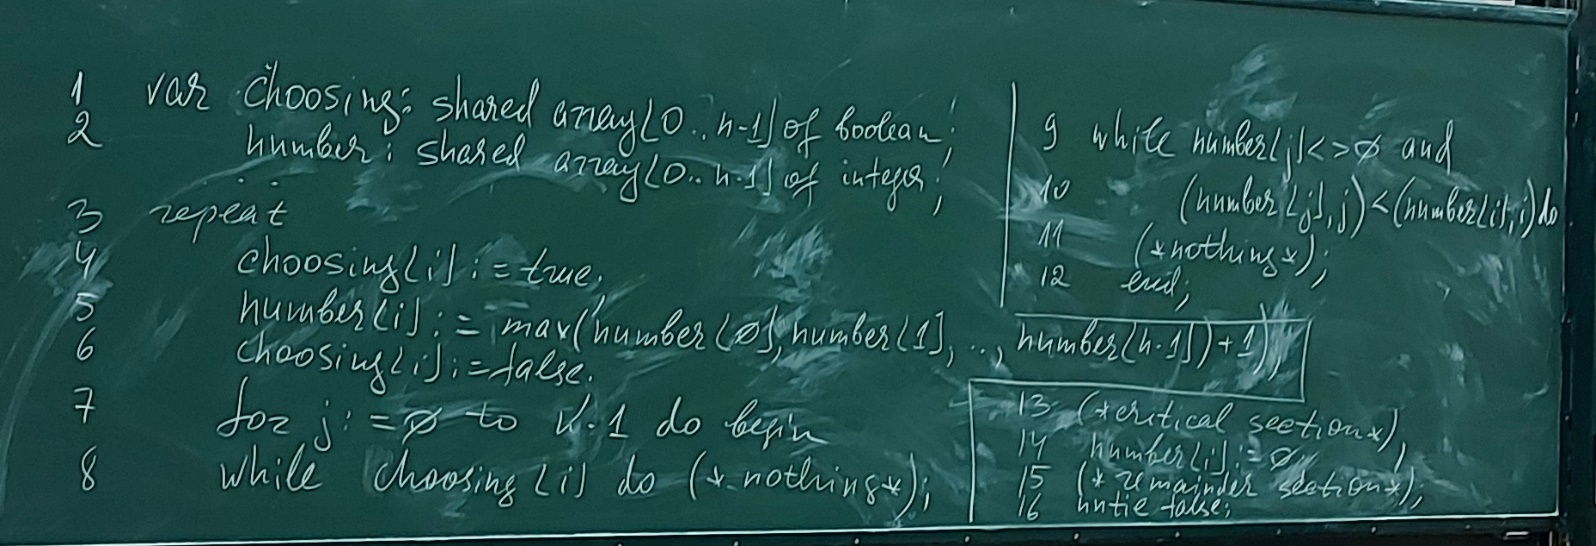 1 var choosing: shared array[0..n-1] of boolean;
2 number: shared array[0..n-1] of integer;
3 repeat
4 choosing[i] := true;
5 number[i] := max(number[ø], number[1], .., number[n-1]) + 1);
6 choosing[i] := false;
7 for j := ø to n-1 do begin
8 while choosing[i] do (*nothing*);
9 while number[j] <> ø and
10 (number[j], j) < (number[i], i) do
11 (*nothing*);
12 end;
13 (*critical section*);
14 number[i] := ø;
15 (*remainder section*);
16 until false;